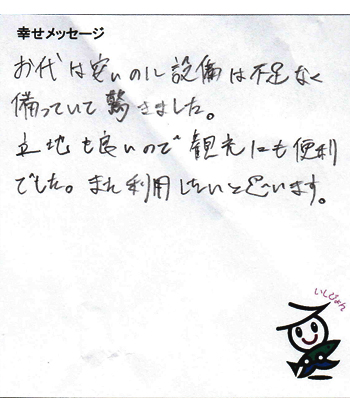 幸せメッセージ
お代は安いのに設備は不足なく
備っていて驚きました。
立地も良いので観光にも便利
でした。また利用したいと思います。
いしぴょん